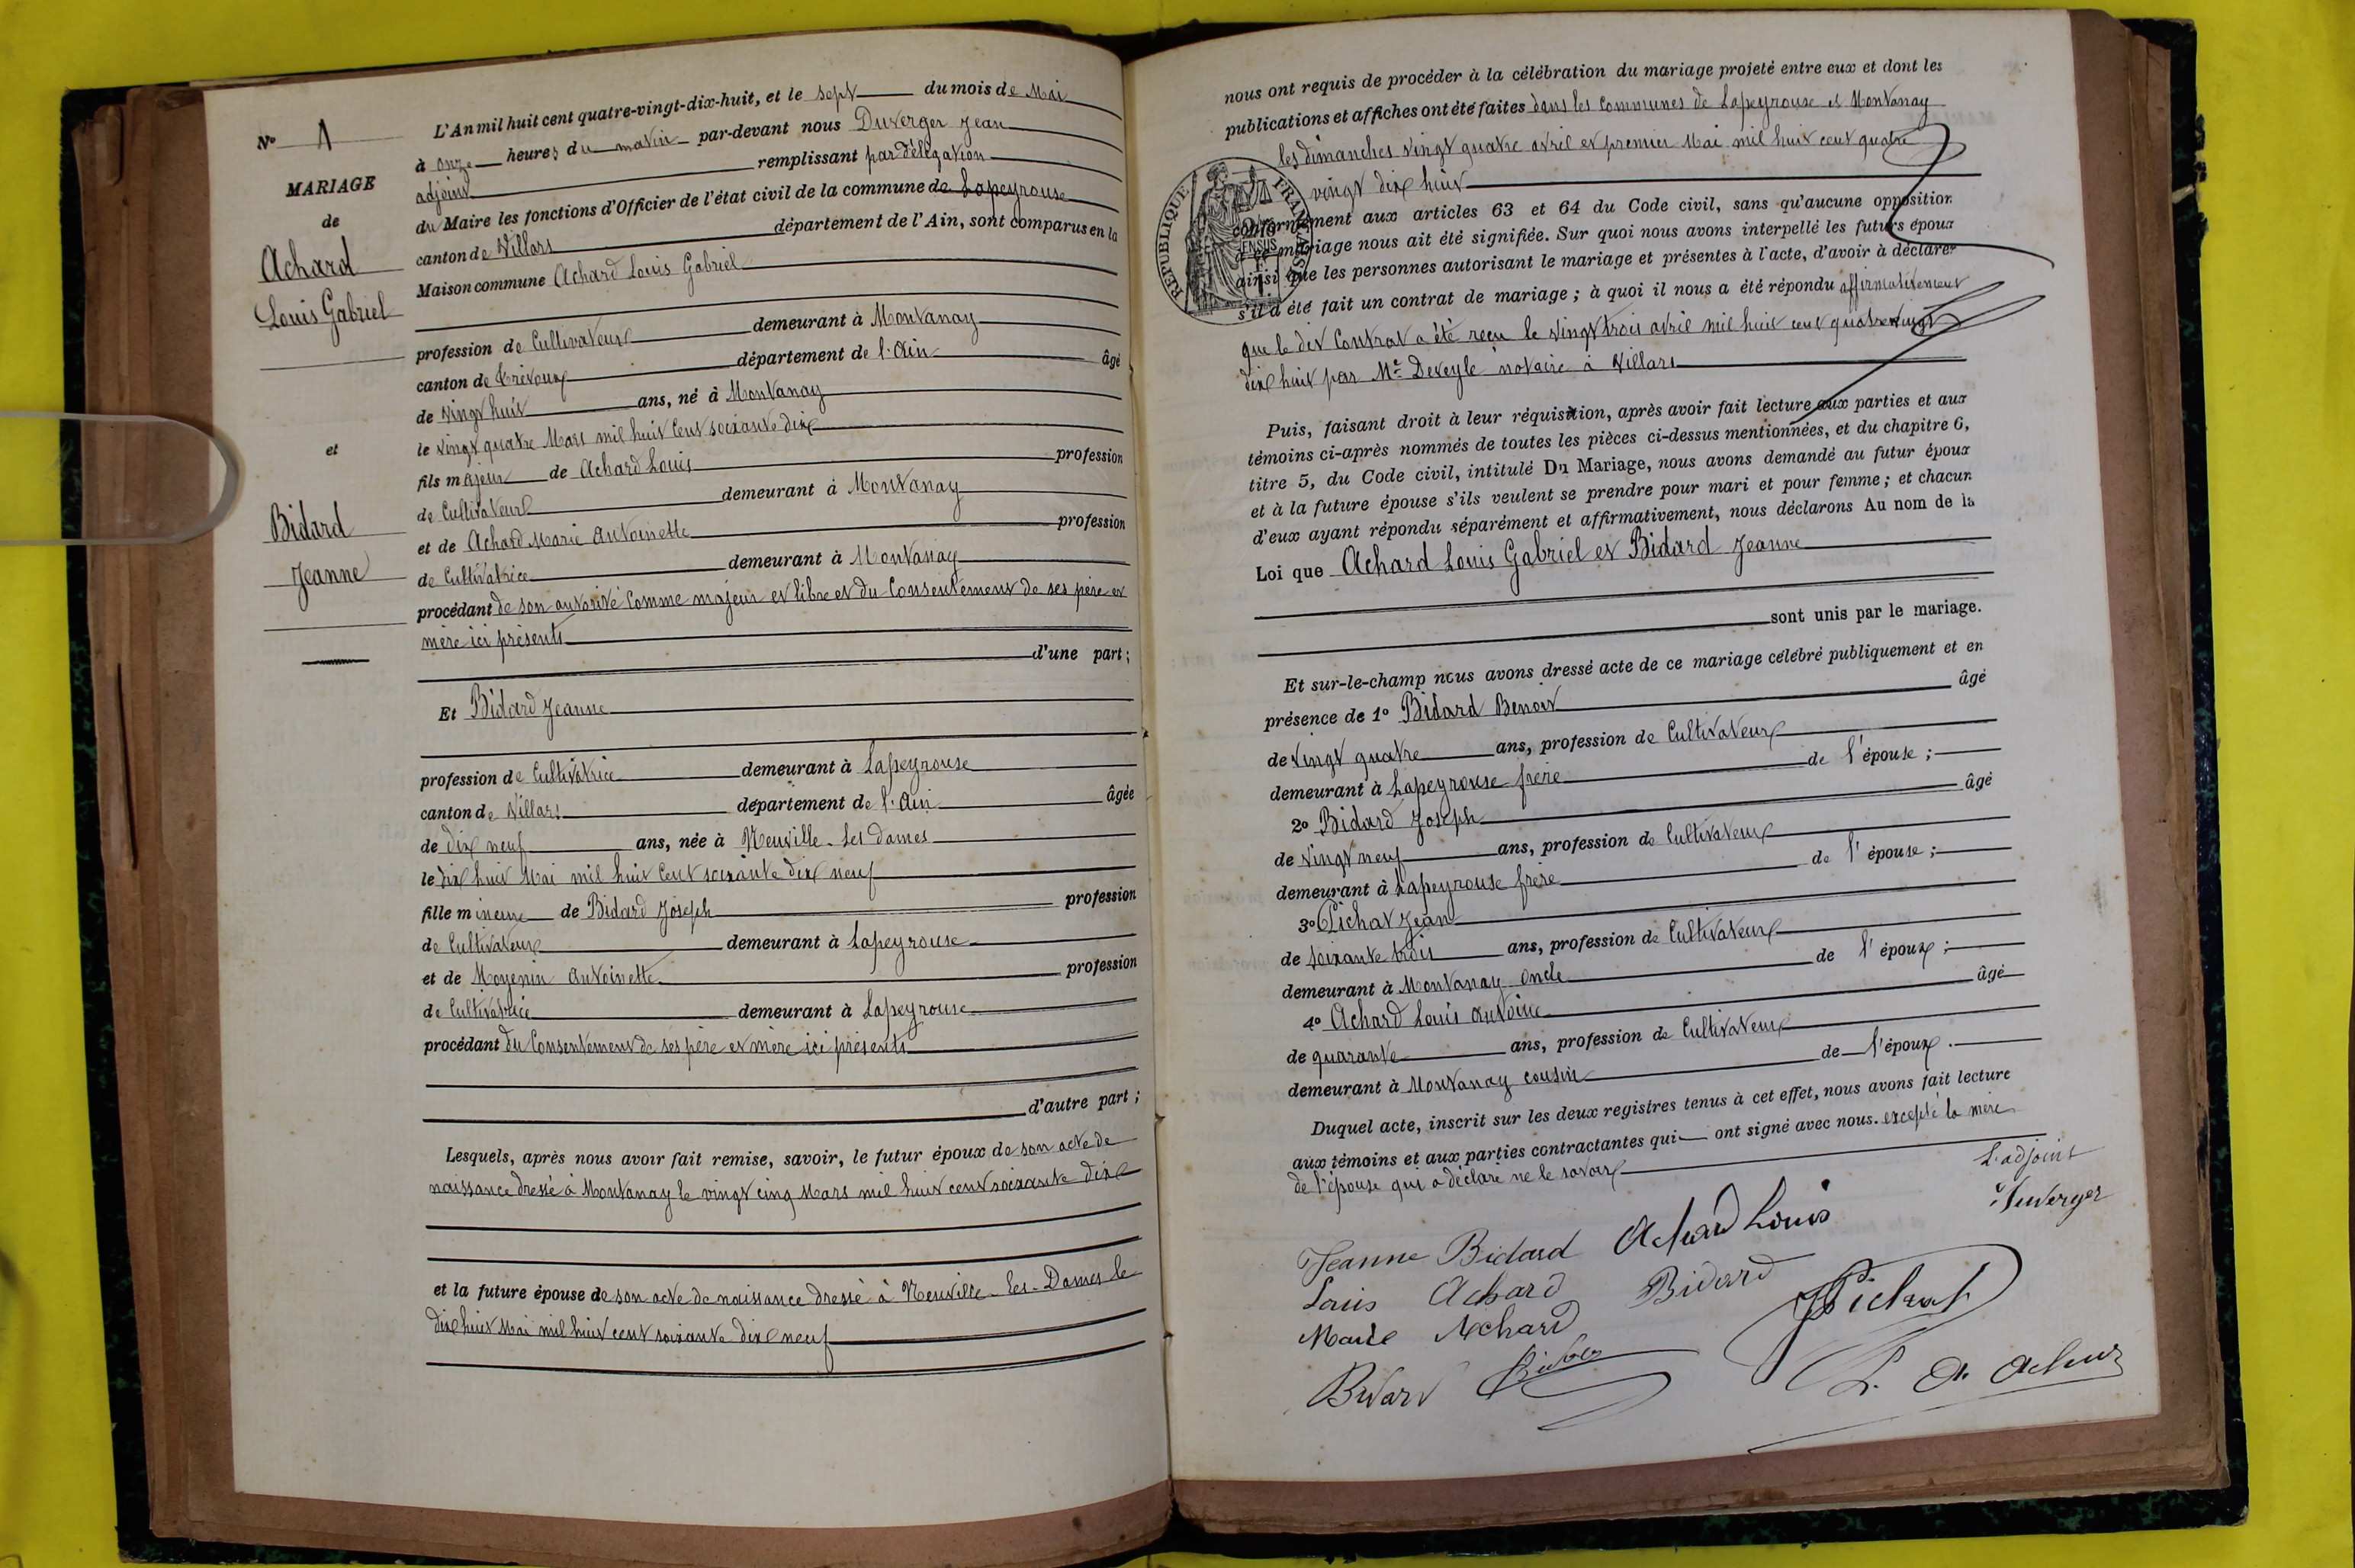 N° 1
MARIAGE
de
Achard
Louis Gabriel
et
Bidard
Jeanne
L'An mil huit cent quatre-vingt-dix-huit, et le sept du mois de Mai
à onze heures du matin par-devant nous Duverger Jean
adjoint remplissant par délégation
du Maire les fonctions d'Officier de l'état civil de la commune de Lapeyrouse
canton de Villars département de l'Ain, sont comparus en la
Maison commune Achard Louis Gabriel
profession de Cultivateur demeurant à Montanay
canton de Trévoux département de l'Ain âgé
de vingt huit ans, né à Montanay
le vingt quatre Mars mil huit cent soixante dix
fils majeur de Achard Louis profession
de Cultivateur demeurant à Montanay
et de Achard Marie Antoinette profession
de Cultivatrice demeurant à Montanay
procédant de son autorité comme majeur et libre et du Consentement de ses père et
mère ici présents
d'une part ;
Et Bidard Jeanne
profession de Cultivatrice demeurant à Lapeyrouse
canton de Villars département de l'Ain âgée
de dix neuf ans, née à Neuville-les-Dames
le dix huit Mai mil huit cent soixante dix neuf
fille mineure de Bidard Joseph profession
de Cultivateur demeurant à Lapeyrouse
et de Moyenin Antoinette profession
de Cultivatrice demeurant à Lapeyrouse
procédant du Consentement de ses père et mère ici présents
d'autre part ;
Lesquels, après nous avoir fait remise, savoir, le futur époux de son acte de
naissance dressé à Montanay le vingt cinq Mars mil huit cent soixante dix
et la future épouse de son acte de naissance dressé à Neuville-les-Dames le
dix huit Mai mil huit cent soixante dix neuf
nous ont requis de procéder à la célébration du mariage projeté entre eux et dont les
publications et affiches ont été faites dans les communes de Lapeyrouse et Montanay
les dimanches vingt quatre avril et premier Mai mil huit cent quatre
vingt dix huit
RÉPUBLIQUE FRANÇAISE
conformément aux articles 63 et 64 du Code civil, sans qu'aucune opposition
à ce mariage nous ait été signifiée. Sur quoi nous avons interpellé les futurs époux
ainsi que les personnes autorisant le mariage et présentes à l'acte, d'avoir à déclarer
s'il a été fait un contrat de mariage ; à quoi il nous a été répondu affirmativement
que le dit Contrat a été reçu le vingt trois avril mil huit cent quatre vingt
dix huit par Me Deveyle notaire à Villars
Puis, faisant droit à leur réquisition, après avoir fait lecture aux parties et aux
témoins ci-après nommés de toutes les pièces ci-dessus mentionnées, et du chapitre 6,
titre 5, du Code civil, intitulé Du Mariage, nous avons demandé au futur époux
et à la future épouse s'ils veulent se prendre pour mari et pour femme ; et chacun
d'eux ayant répondu séparément et affirmativement, nous déclarons Au nom de la
Loi que Achard Louis Gabriel et Bidard Jeanne
sont unis par le mariage.
Et sur-le-champ nous avons dressé acte de ce mariage célébré publiquement et en
présence de 1° Bidard Benoit âgé
de vingt quatre ans, profession de Cultivateur
demeurant à Lapeyrouse frère de l'épouse ;
2° Bidard Joseph âgé
de vingt neuf ans, profession de Cultivateur
demeurant à Lapeyrouse frère de l'épouse ;
3° Pichat Jean
de soixante trois ans, profession de Cultivateur
demeurant à Montanay oncle de l'époux ;
4° Achard Louis Antoine âgé
de quarante ans, profession de Cultivateur
demeurant à Montanay cousin de l'époux.
Duquel acte, inscrit sur les deux registres tenus à cet effet, nous avons fait lecture
aux témoins et aux parties contractantes qui ont signé avec nous. excepté la mère
de l'épouse qui a déclaré ne le savoir
L'adjoint
Duverger
Jeanne Bidard Achard Louis
Louis Achard Bidard
Marie Achard Pichat
Bidard
L. A. Achard